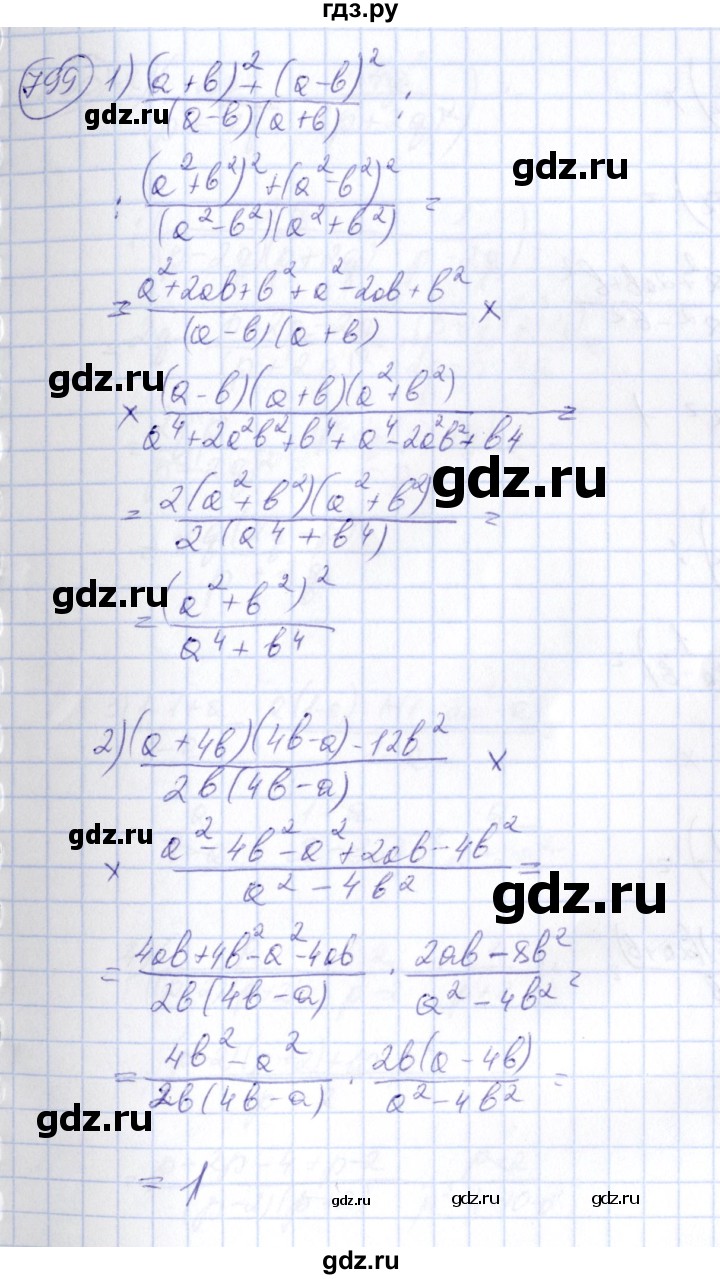 гдз.ру
799 1) ((a+b)²+(a-b)²)/((a-b)(a+b)) :
gdz.ru
: ((a²+b²)²+(a²-b²)²)/((a²-b²)(a²+b²)) =
gdz.ru
= (a²+2ab+b²+a²-2ab+b²)/((a-b)(a+b)) ×
gdz.ru
× ((a-b)(a+b)(a²+b²))/(a⁴+2a²b²+b⁴+a⁴-2a²b²+b4) =
gdz.ru
= (2(a²+b²)(a²+b²))/(2(a4+b4)) =
gdz.ru
= (a²+b²)²/(a⁴+b⁴)
2) ((a+4b)(4b-a)-12b²)/(2b(4b-a)) ×
gdz.ru
× (a²-4b²-a²+2ab-4b²)/(a²-4b²) =
gdz.ru
= (4ab+4b²-a²-4ab)/(2b(4b-a)) · (2ab-8b²)/(a²-4b²) =
= (4b²-a²)/(2b(4b-a)) · (2b(a-4b))/(a²-4b²) =
gdz.ru
= 1
gdz.ru
gdz.ru
gdz.ru
gdz.ru